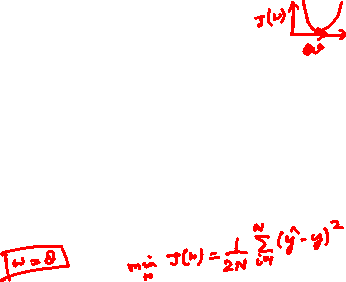 J(w)
w
w = θ
min w J(w) = 1/2N Σ i=1 N (ŷ - y)²